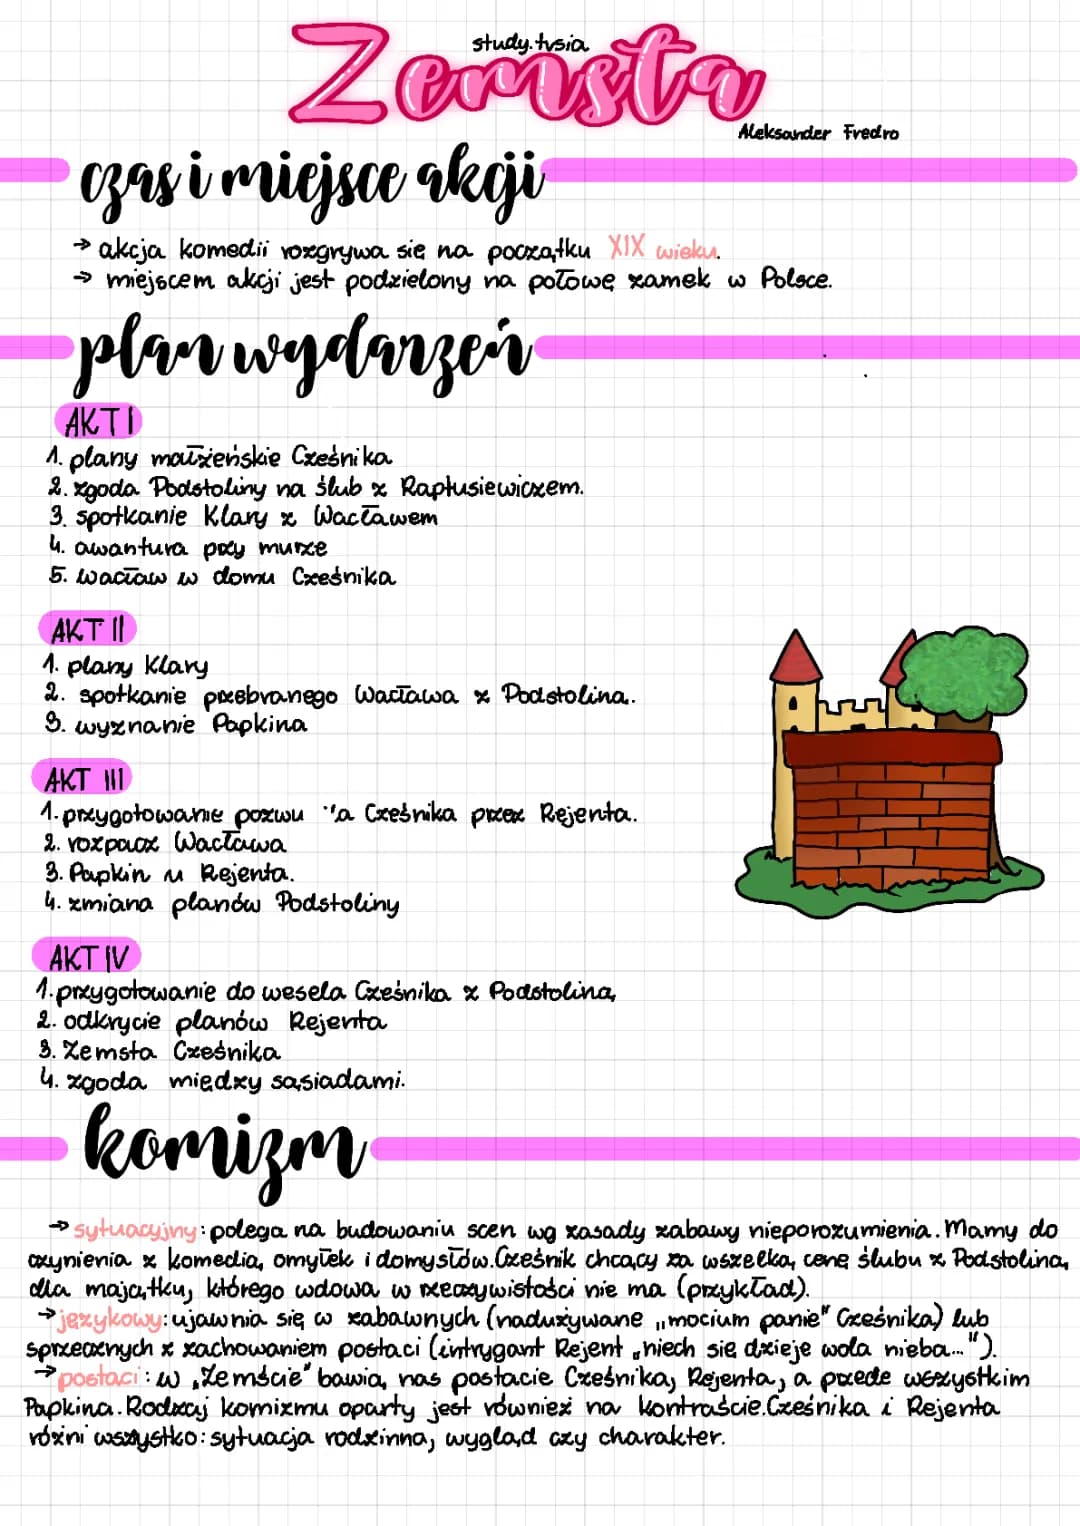 study.tvsia
Zemsta
Aleksander Fredro
czas i miejsce akcji
→ akcja komedii rozgrywa się na początku XIX wieku.
→ miejscem akcji jest podzielony na połowę zamek w Polsce.
plan wydarzeń
AKT I
1. plany małżeńskie Cześnika
2. zgoda Podstoliny na ślub z Raptusiewiczem.
3. spotkanie Klary z Wacławem
4. awantura przy murze
5. Wacław w domu Cześnika
AKT II
1. plany Klary
2. spotkanie przebranego Wacława z Podstoliną.
3. wyznanie Papkina
AKT III
1. przygotowanie pozwu "a Cześnika przez Rejenta.
2. rozpacz Wacława
3. Papkin u Rejenta.
4. zmiana planów Podstoliny
AKT IV
1. przygotowanie do wesela Cześnika z Podstoliną
2. odkrycie planów Rejenta
3. Zemsta Cześnika
4. zgoda między sąsiadami.
komizm
→ sytuacyjny: polega na budowaniu scen wg zasady zabawy nieporozumienia. Mamy do
czynienia z komedią omyłek i domysłów. Cześnik chcący za wszelką cenę ślubu z Podstoliną,
dla majątku, którego wdowa w rzeczywistości nie ma (przykład).
→ językowy: ujawnia się w zabawnych (nadużywane „mocium panie" Cześnika) lub
sprzecznych z zachowaniem postaci (intrygant Rejent „niech się dzieje wola nieba..").
→ postaci: w „Zemście" bawią nas postacie Cześnika, Rejenta, a przede wszystkim
Papkina. Rodzaj komizmu oparty jest również na kontraście. Cześnika i Rejenta
różni wszystko: sytuacja rodzinna, wygląd czy charakter.